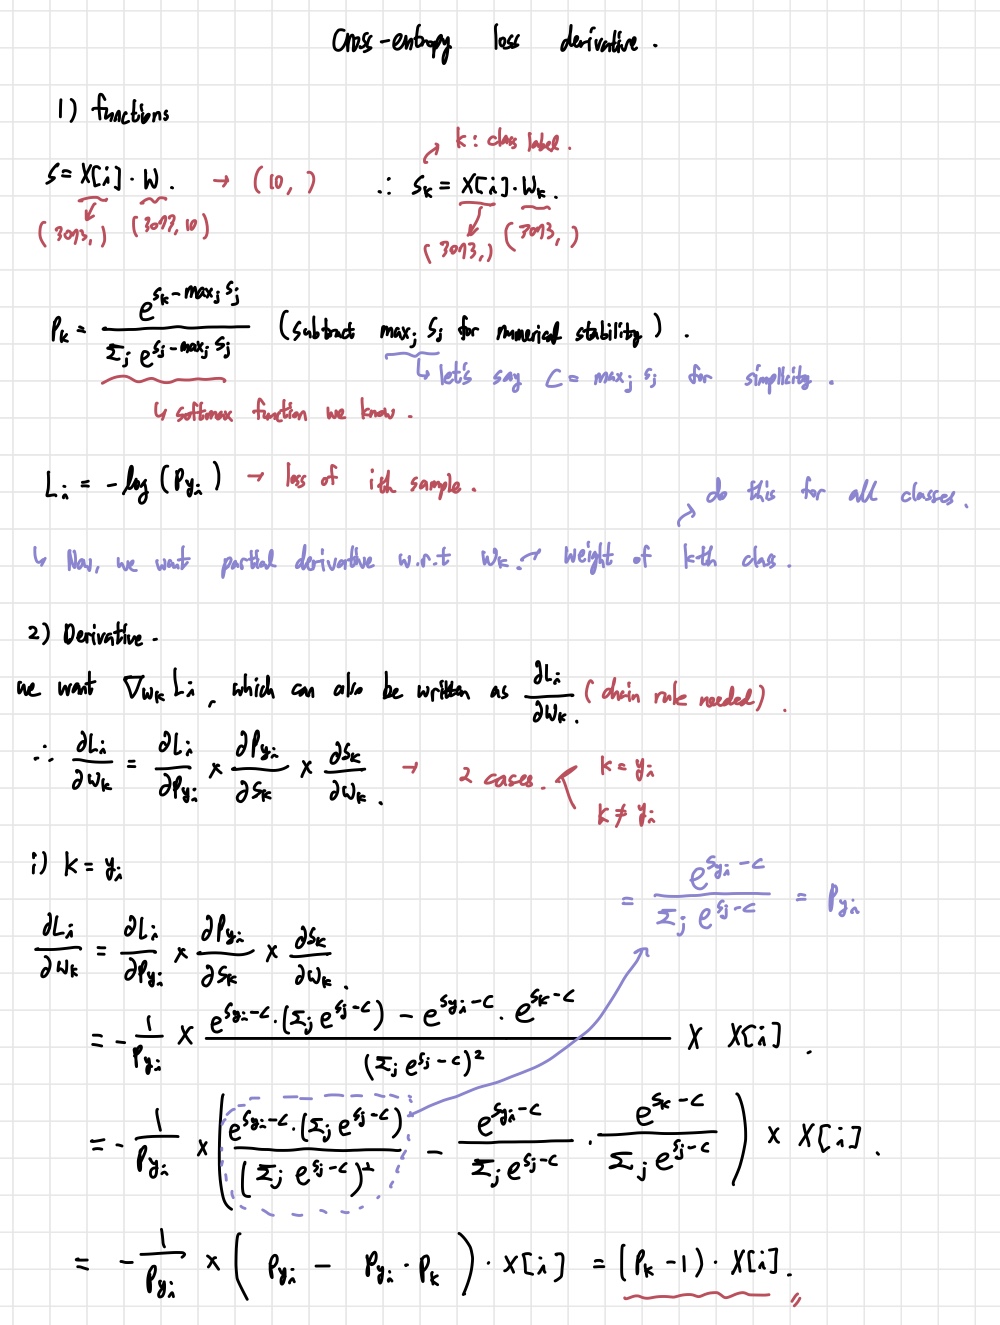 Cross-entropy loss derivative.
1) functions
k: class label.
S = X[i] · W. → (10, ) ∴ S_k = X[i] · W_k.
(3073,) (3073, 10) (3073,) (3073, )
P_k = e^{S_k - max_j S_j} / Σ_j e^{S_j - max_j S_j} (subtract max_j S_j for numerical stability).
↳ let's say C = max_j S_j for simplicity.
↳ softmax function we know.
L_i = -log(P_{y_i}) → loss of ith sample.
do this for all classes.
↳ Now, we want partial derivative w.r.t W_k. → weight of k-th class.
2) Derivative.
we want ∇_{W_k} L_i, which can also be written as ∂L_i/∂W_k. (chain rule needed).
∴ ∂L_i/∂W_k = ∂L_i/∂P_{y_i} × ∂P_{y_i}/∂S_k × ∂S_k/∂W_k. → 2 cases. k = y_i
k ≠ y_i
i) k = y_i
= e^{S_{y_i} - C} / Σ_j e^{S_j - C} = P_{y_i}
∂L_i/∂W_k = ∂L_i/∂P_{y_i} × ∂P_{y_i}/∂S_k × ∂S_k/∂W_k.
= - 1/P_{y_i} × (e^{S_{y_i} - C} · (Σ_j e^{S_j - C}) - e^{S_{y_i} - C} · e^{S_k - C}) / (Σ_j e^{S_j - C})^2 × X[i].
= - 1/P_{y_i} × (e^{S_{y_i} - C} · (Σ_j e^{S_j - C}) / (Σ_j e^{S_j - C})^2 - e^{S_{y_i} - C} / Σ_j e^{S_j - C} · e^{S_k - C} / Σ_j e^{S_j - C}) × X[i].
= - 1/P_{y_i} × (P_{y_i} - P_{y_i} · P_k) · X[i] = (P_k - 1) · X[i].